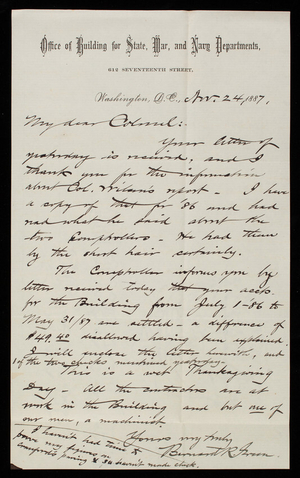 Office of Building for State, War, and Navy Departments,
612 SEVENTEENTH STREET,
Washington, D.C., Nov. 24, 1887.
My dear Colonel:
Your letter of
yesterday is received, and I
thank you for the information
about Col. Wilson's report - I have
a copy of that for 86 and had
read what he said about the
two Comptrollers - He had them
by the short hair certainly.
The Comptroller informs you by
letter received today that your accts.
for the Building from July 1-86 to
May 31/87 are settled - a difference of
$49.40 disallowed having been explained.
I will enclose the letter herewith, and
of the two checks mentioned yesterday.
This is a wet Thanksgiving
Day - All the contractors are at
work in the Building and but one of
our men, a machinist.
Yours very truly
Bernard R. Green.
I haven't had time to
prove my figures on
Comptr's  & so haven't made check.